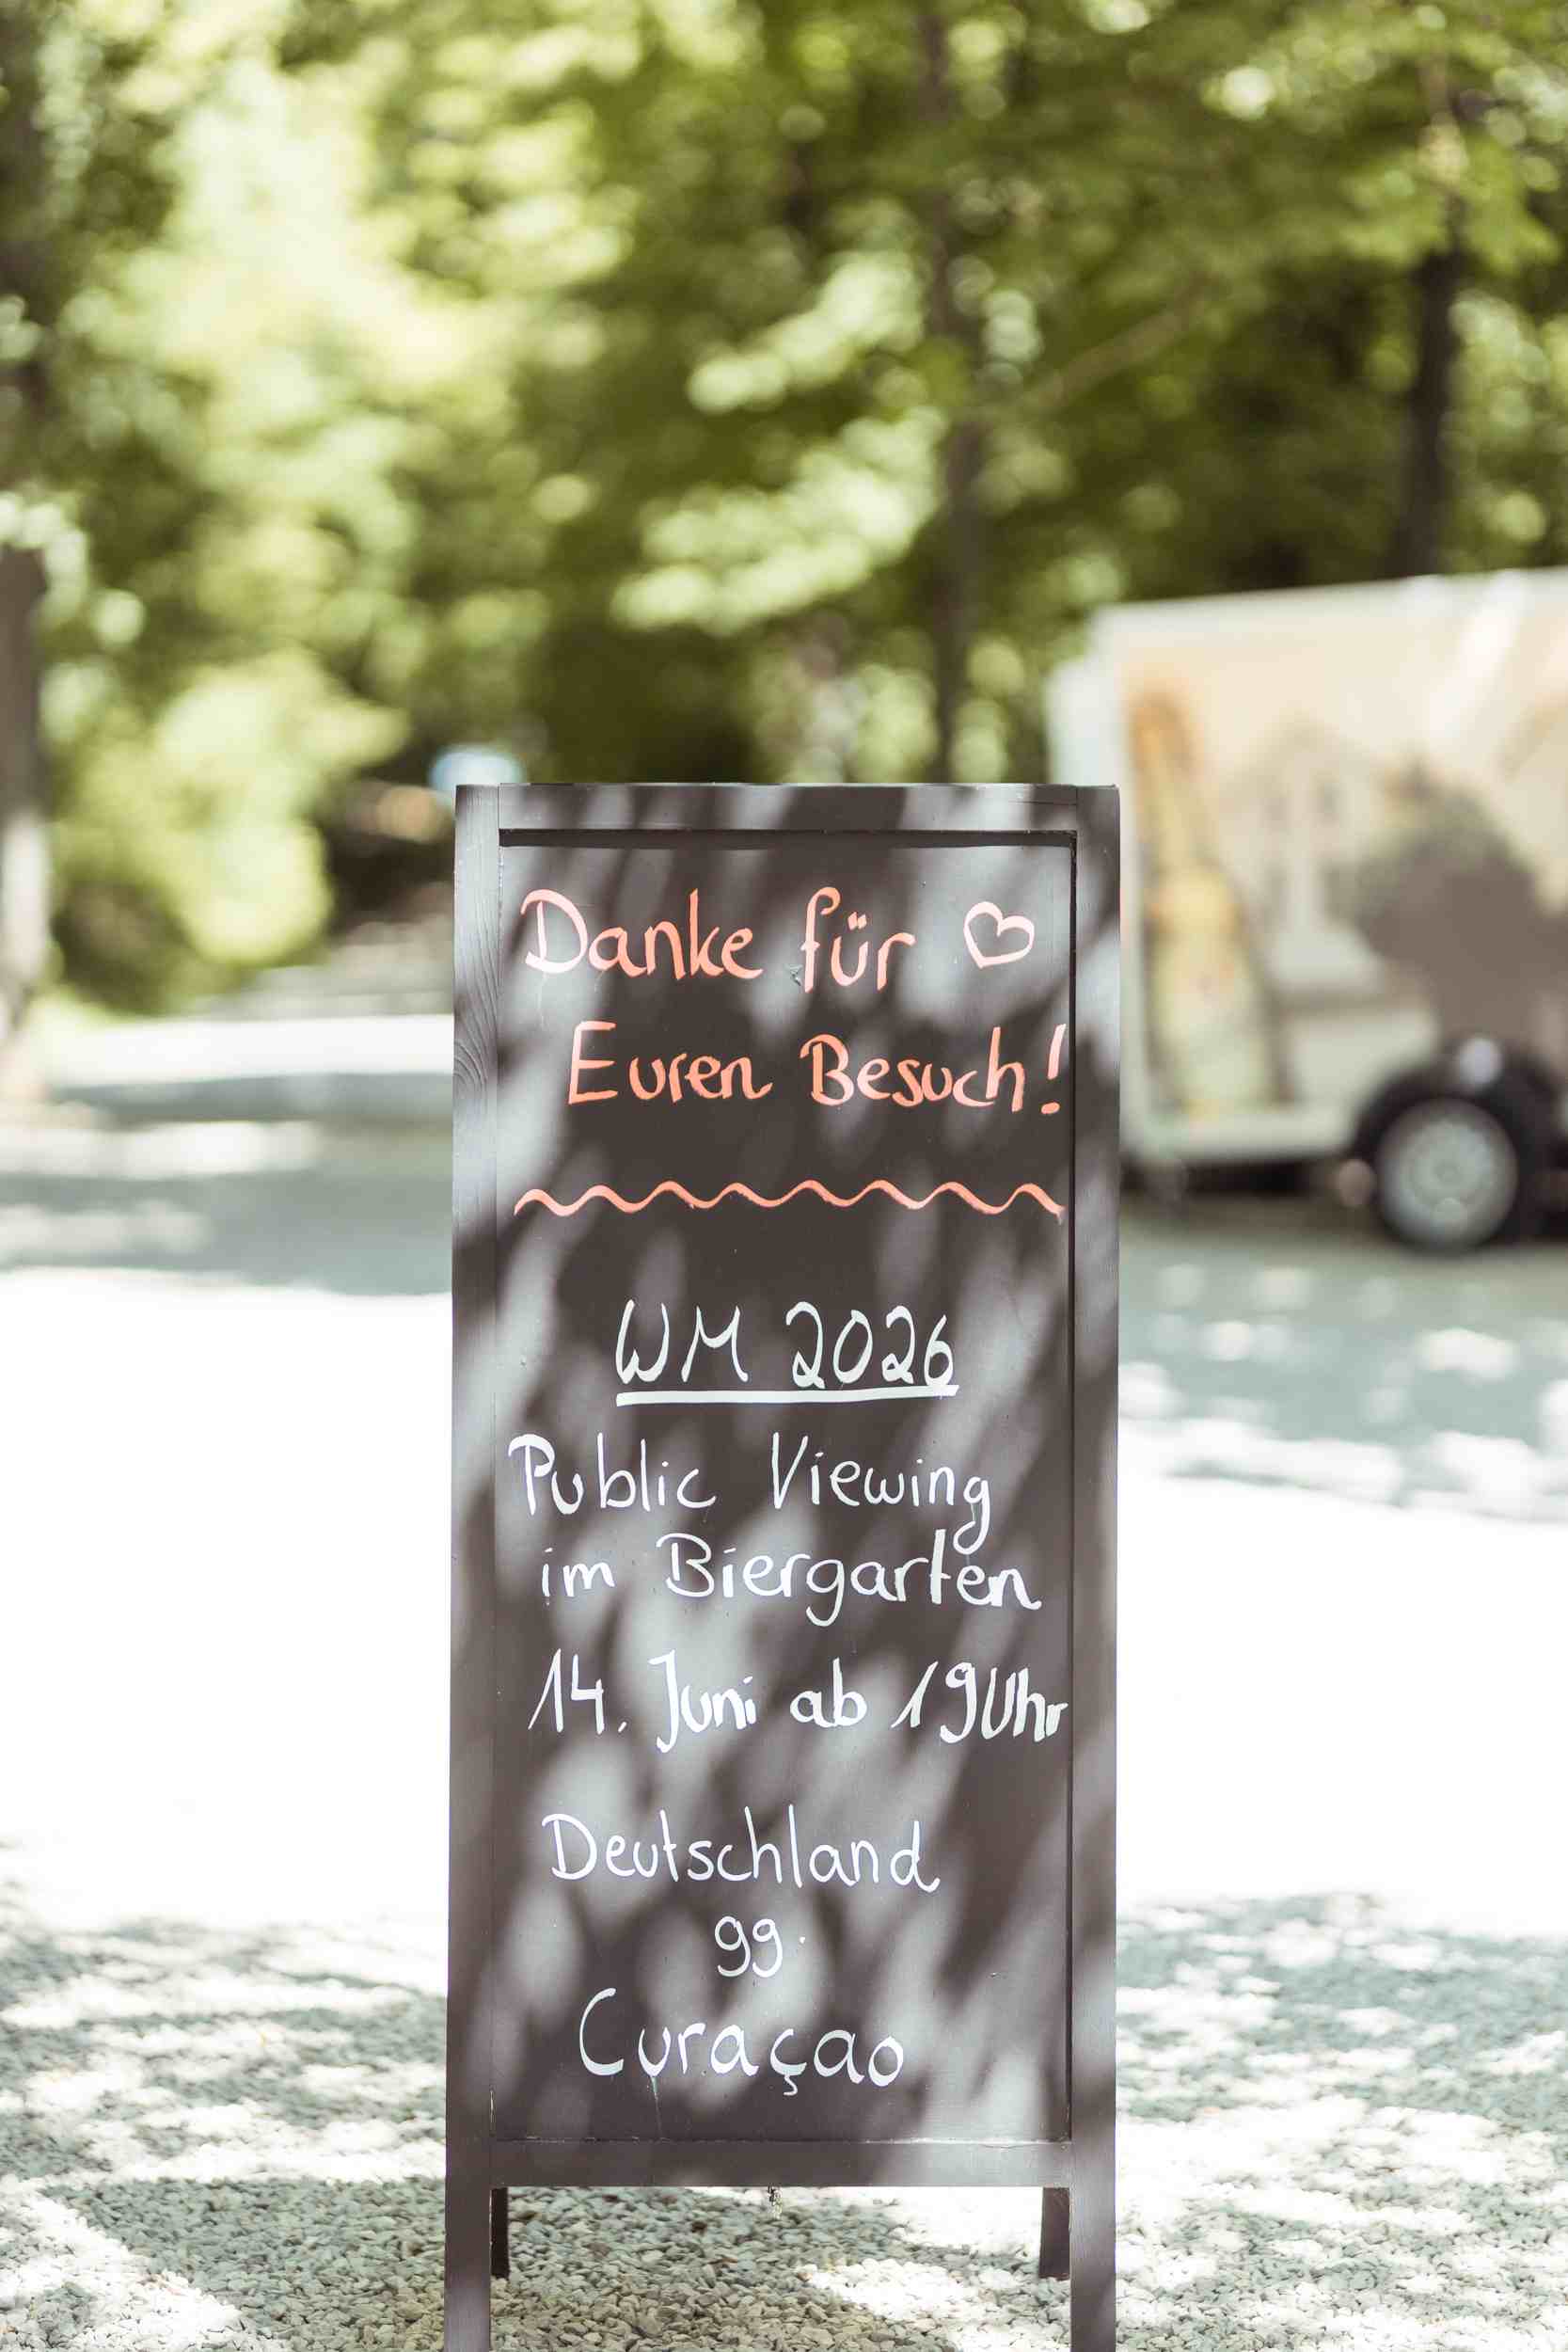 Danke für ♡
Euren Besuch!
WM 2026
Public Viewing
im Biergarten
14. Juni ab 19Uhr
Deutschland
gg.
Curaçao